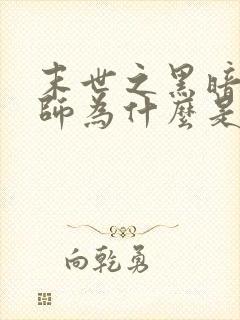 末世之黑暗
師為什麼是
向乾勇